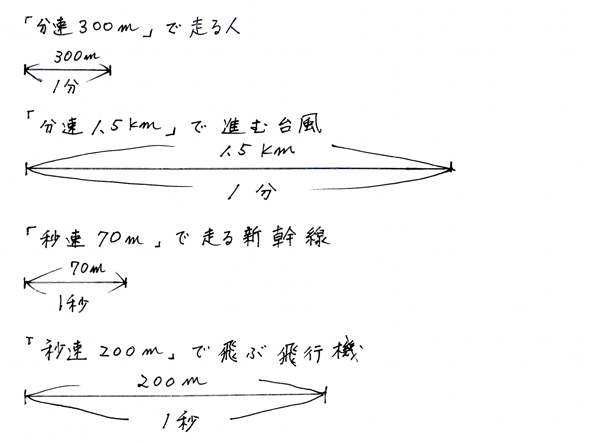 「分速300m」で走る人
300m
1分
「分速1.5km」で進む台風
1.5km
1分
「秒速70m」で走る新幹線
70m
1秒
「秒速200m」で飛ぶ飛行機
200m
1秒